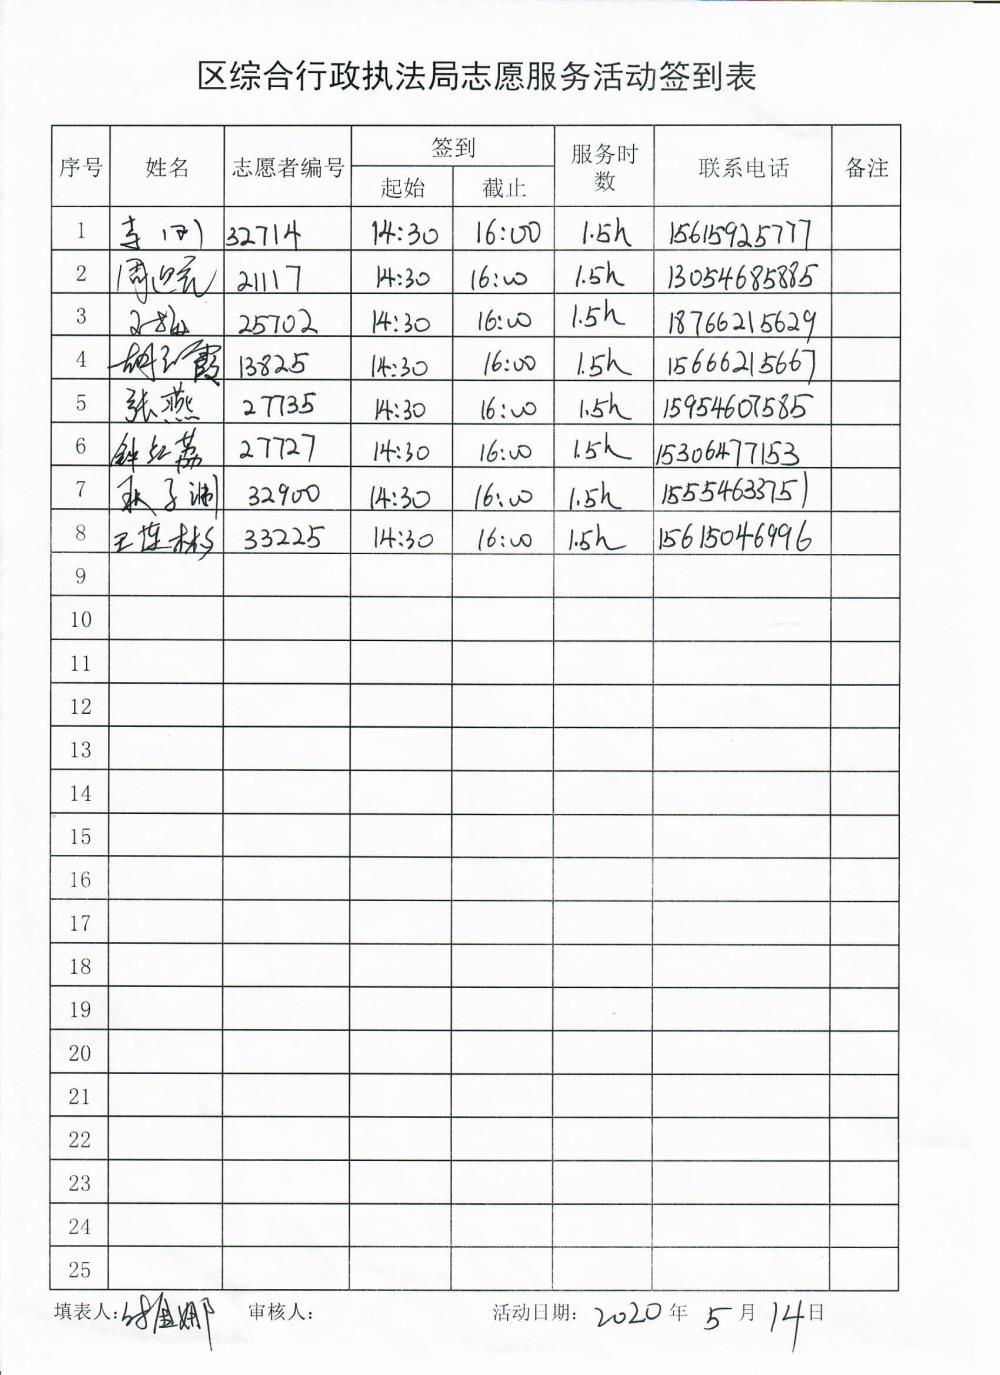 区综合行政执法局志愿服务活动签到表
序号 姓名 志愿者编号 签到 服务时数 联系电话 备注
起始 截止
1 32714 14:30 16:00 1.5h 15615925777
2 21117 14:30 16:00 1.5h 13054685885
3 25702 14:30 16:00 1.5h 18766215629
4 胡玉霞 13825 14:30 16:00 1.5h 15666215667
5 张燕 27735 14:30 16:00 1.5h 15954607585
6 钟红荔 27727 14:30 16:00 1.5h 15306477153
7 32900 14:30 16:00 1.5h 15554633751
8 王莲彬 33225 14:30 16:00 1.5h 15615046996
9
10
11
12
13
14
15
16
17
18
19
20
21
22
23
24
25
填表人: 审核人: 活动日期: 2020 年 5 月 14 日